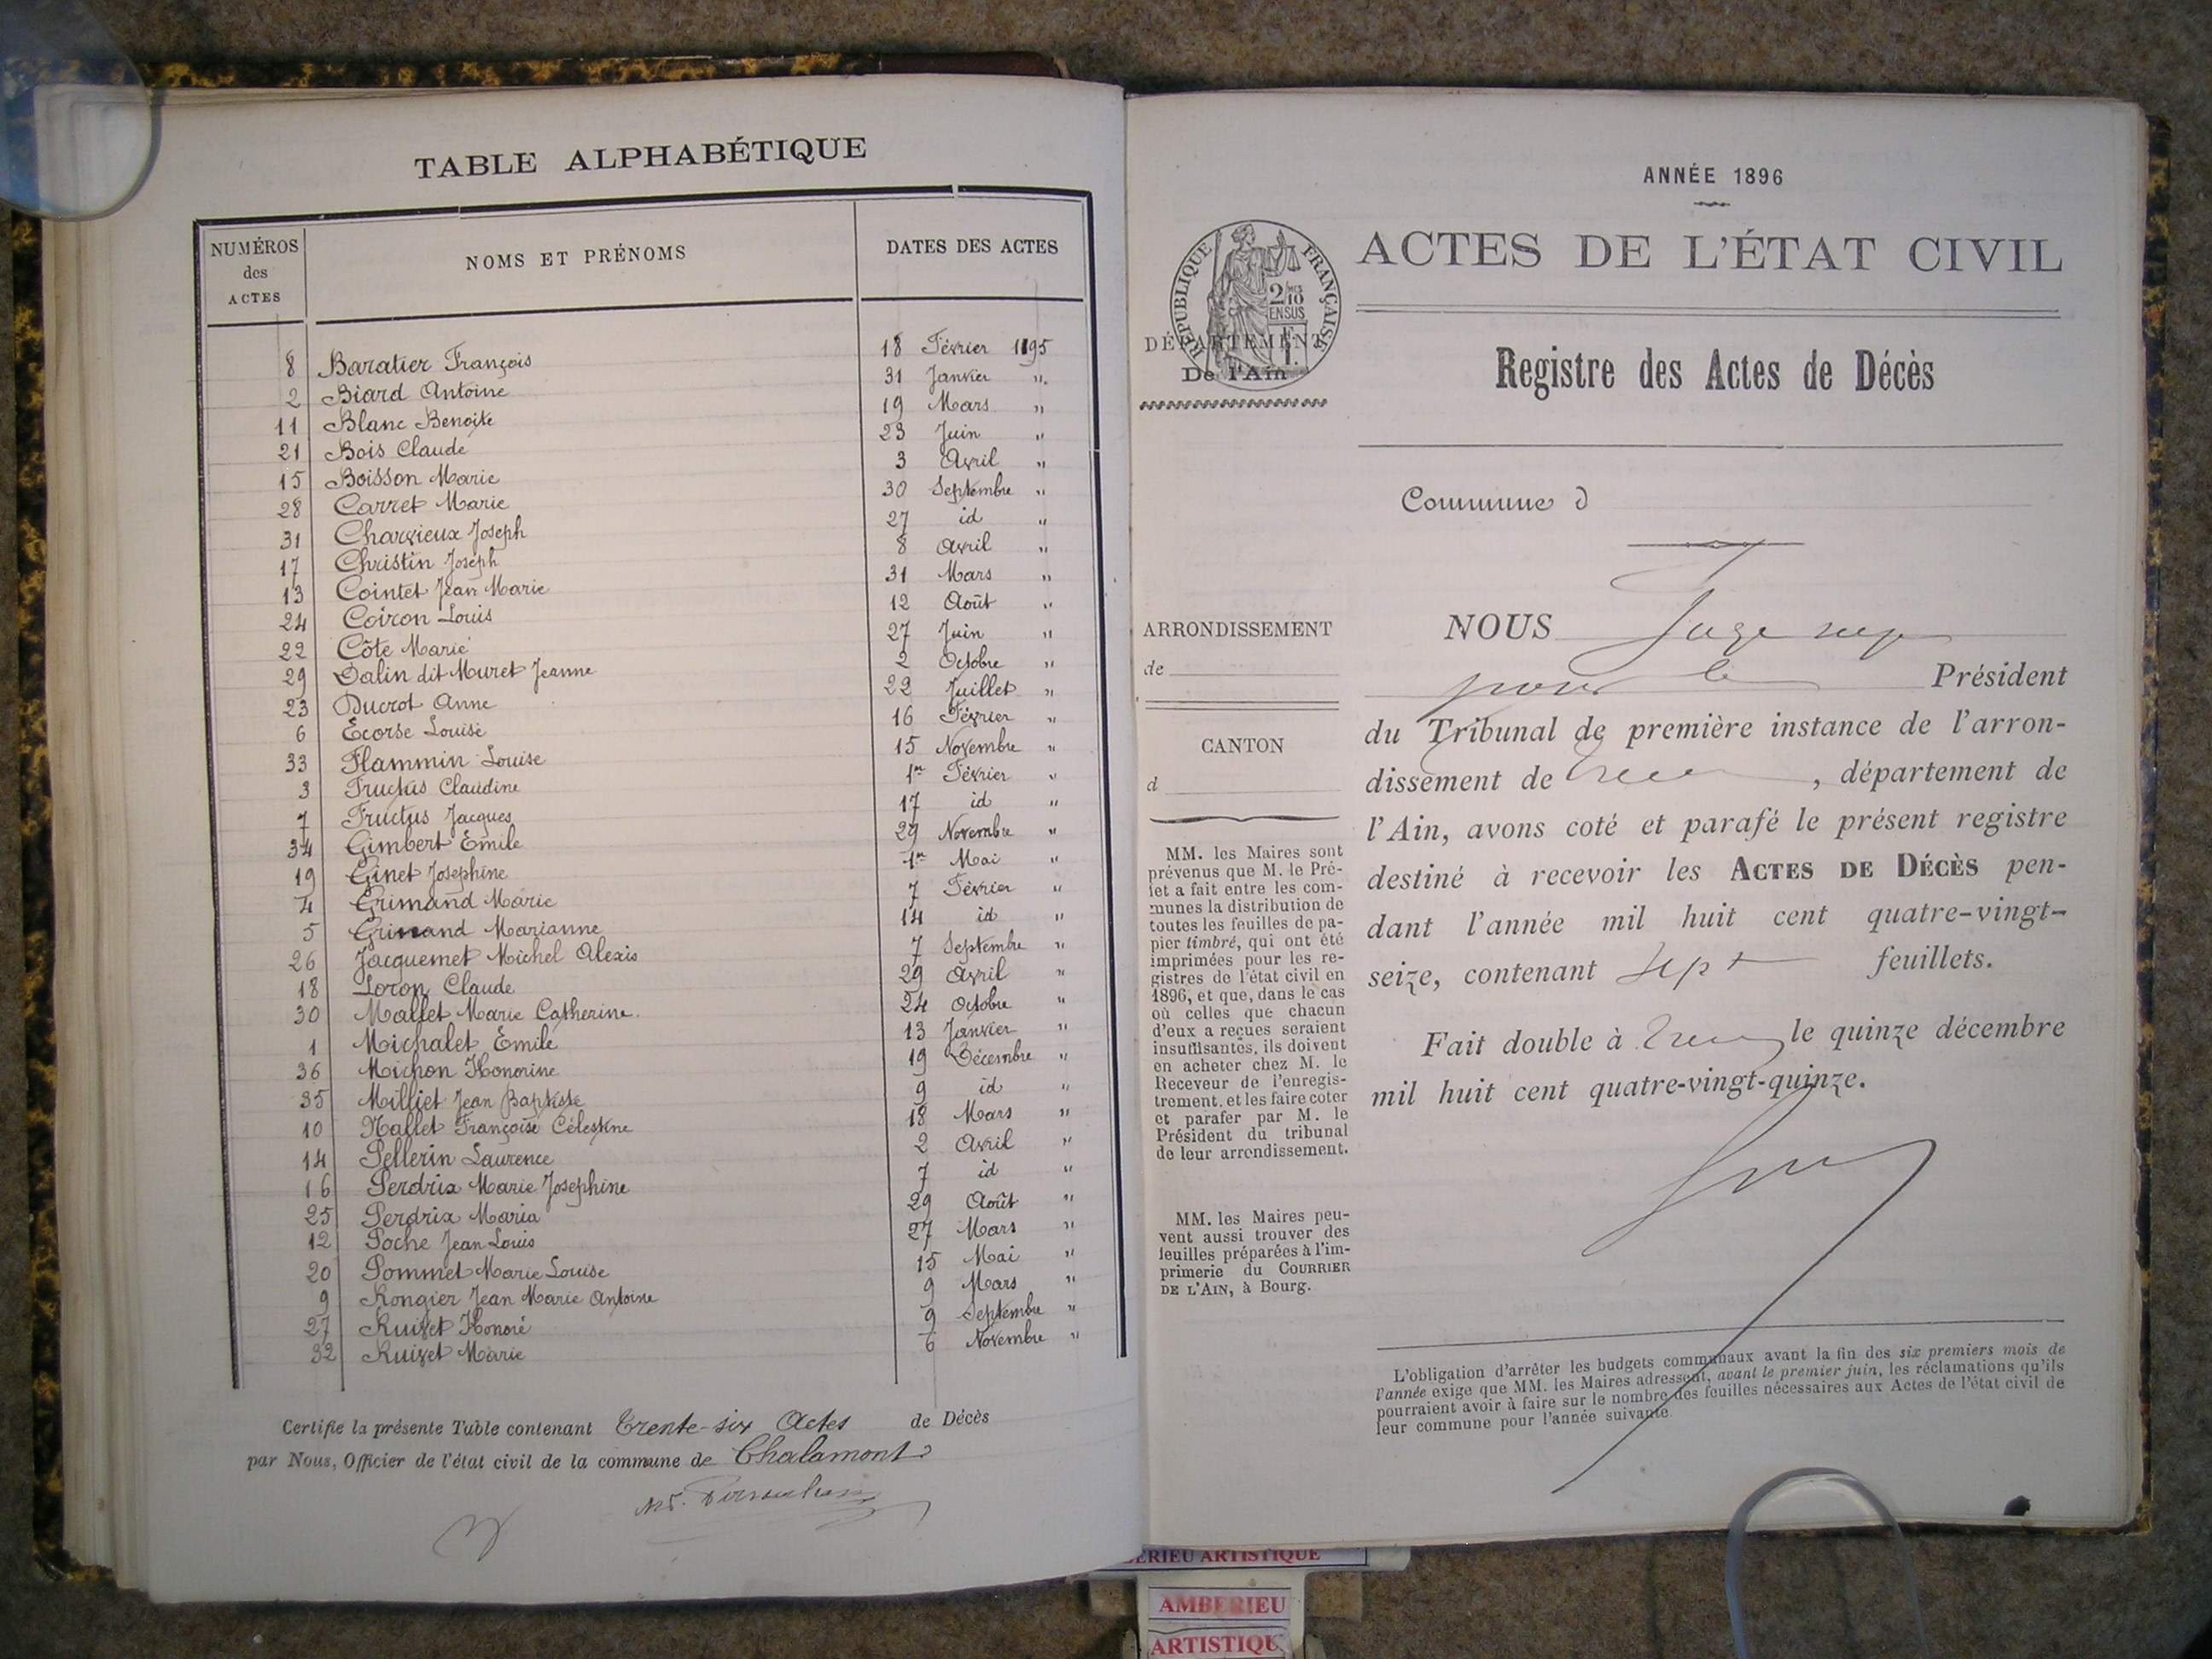 TABLE ALPHABÉTIQUE
NUMÉROS des ACTES NOMS ET PRÉNOMS DATES DES ACTES
8 Baratier François 18 Février 1895
2 Biard Antoine 31 Janvier "
11 Blanc Benoite 19 Mars "
21 Bois Claude 23 Juin "
15 Boisson Marie 3 Avril "
28 Carret Marie 30 Septembre "
31 Charvieux Joseph 27 id "
17 Christin Joseph 8 Avril "
13 Cointet Jean Marie 31 Mars "
24 Coiron Louis 12 Août "
22 Côte Marie 27 Juin "
29 Dalin dit Muret Jeanne 2 Octobre "
23 Ducrot Anne 22 Juillet "
6 Ecorse Louise 16 Février "
33 Flammin Louise 15 Novembre "
3 Fructus Claudine 1er Février "
7 Fructus Jacques 17 id "
34 Gimbert Emile 29 Novembre "
19 Ginet Josephine 1er Mai "
4 Grimand Marie 7 Février "
5 Grimand Marianne 14 id "
26 Jacquemet Michel Alexis 7 Septembre "
18 Loron Claude 29 Avril "
30 Mallet Marie Catherine. 24 Octobre "
1 Michalet Emile 13 Janvier "
36 Michon Honorine 19 Décembre "
35 Milliet Jean Baptiste 9 id "
10 Nallet Françoise Célestine 18 Mars "
14 Pellerin Laurence 2 Avril "
16 Perdrix Marie Josephine 7 id "
25 Perdrix Maria 29 Août "
12 Poche Jean Louis 27 Mars "
20 Pommet Marie Louise 15 Mai "
9 Rongier Jean Marie Antoine 9 Mars "
27 Ruivet Honoré 9 Septembre "
32 Ruivet Marie 6 Novembre "
Certifie la présente Table contenant Trente-six Actes de Décès
par Nous, Officier de l'état civil de la commune de Chalamont
ANNÉE 1896
ACTES DE L'ÉTAT CIVIL
RÉPUBLIQUE FRANÇAISE
2/10 EN SUS
DÉPARTEMENT
De l'Ain
Registre des Actes de Décès
Commune d
ARRONDISSEMENT
de
CANTON
d
MM. les Maires sont
prévenus que M. le Pré-
fet a fait entre les com-
munes la distribution de
toutes les feuilles de pa-
pier timbré, qui ont été
imprimées pour les re-
gistres de l'état civil en
1896, et que, dans le cas
où celles que chacun
d'eux a reçues seraient
insuffisantes, ils doivent
en acheter chez M. le
Receveur de l'enregis-
trement, et les faire coter
et parafer par M. le
Président du tribunal
de leur arrondissement.
MM. les Maires peu-
vent aussi trouver des
feuilles préparées à l'im-
primerie du COURRIER
DE L'AIN, à Bourg.
NOUS Juge sup
pour le Président
du Tribunal de première instance de l'arron-
dissement de , département de
l'Ain, avons coté et parafé le présent registre
destiné à recevoir les ACTES DE DÉCÈS pen-
dant l'année mil huit cent quatre-vingt-
seize, contenant sept feuillets.
Fait double à le quinze décembre
mil huit cent quatre-vingt-quinze.
L'obligation d'arrêter les budgets communaux avant la fin des six premiers mois de
l'année exige que MM. les Maires adressent, avant le premier juin, les réclamations qu'ils
pourraient avoir à faire sur le nombre des feuilles nécessaires aux Actes de l'état civil de
leur commune pour l'année suivante.
BERIEU ARTISTIQUE
AMBERIEU
ARTISTIQU